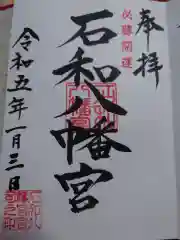 奉拝
必勝開運
石和八幡宮
令和五年一月三日